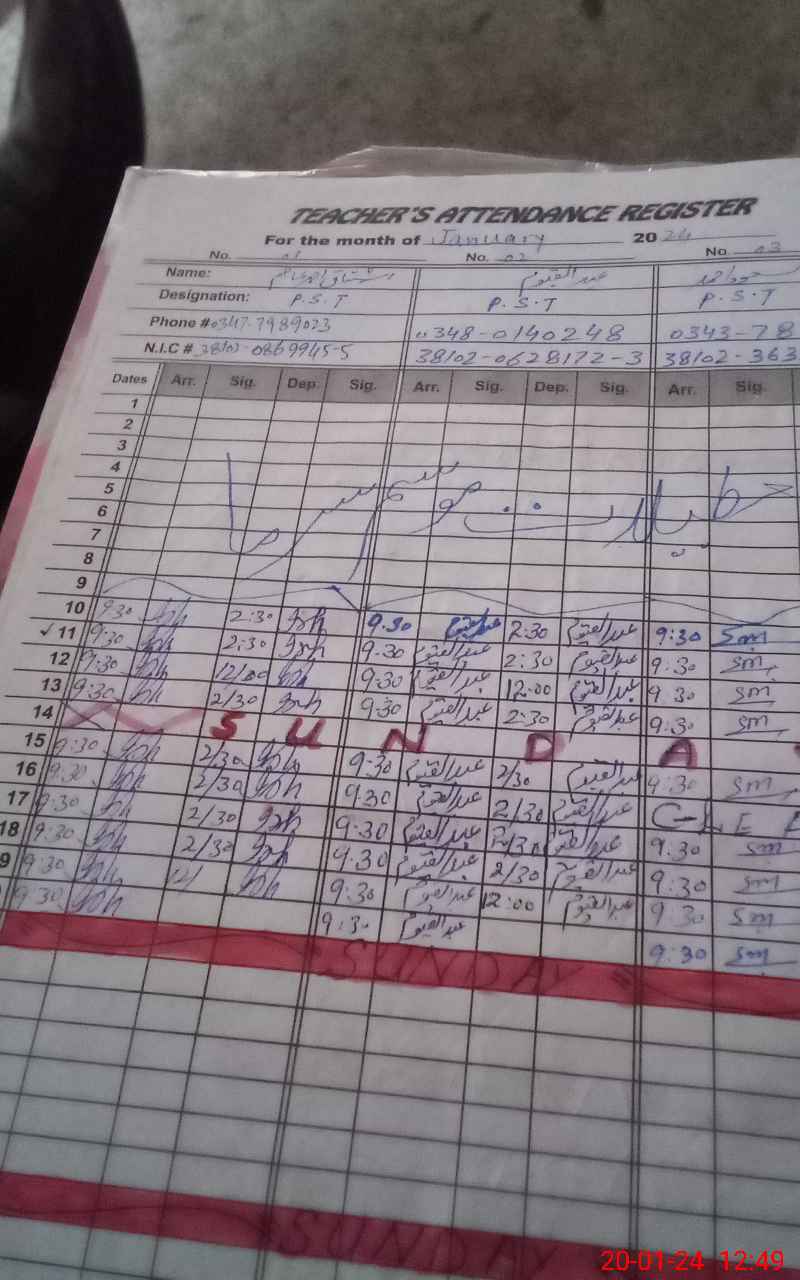 TEACHER'S ATTENDANCE REGISTER
For the month of January 2024
No. 01 No. 02 No. 03
Name: عبدالقیوم
Designation: P.S.T P.S.T P.S.T
Phone # 0347-7989023 0348-0140248 0343-78
N.I.C # 38102-0869945-5 38102-0628172-3 38102-363
Dates Arr. Sig. Dep. Sig. Arr. Sig. Dep. Sig. Arr. Sig.
1
2
3
4
5
6
7
8
9
10 9:30 2:30 9:30 عبدالقیوم 2:30 عبدالقیوم 9:30 Sm
✓ 11 9:30 2:30 9:30 عبدالقیوم 2:30 عبدالقیوم 9:30 Sm
12 9:30 12/00 9:30 عبدالقیوم 12:00 عبدالقیوم 9:30 Sm
13 9:30 2/30 9:30 عبدالقیوم 2:30 عبدالقیوم 9:30 Sm
14 S U N D A
15 9:30 2/30 9:30 عبدالقیوم 2/30 عبدالقیوم 9:30 Sm
16 9:30 2/30 9:30 عبدالقیوم 2/30 عبدالقیوم C-LE
17 9:30 2/30 9:30 عبدالقیوم 2/30 عبدالقیوم 9:30 Sm
18 9:30 2/30 9:30 عبدالقیوم 2/30 عبدالقیوم 9:30 Sm
9 9:30 12/ 9:30 عبدالقیوم 12:00 عبدالقیوم 9:30 Sm
9:30 9:30 عبدالقیوم 9:30 Sm
SUNDAY
SUNDAY
20-01-24 12:49